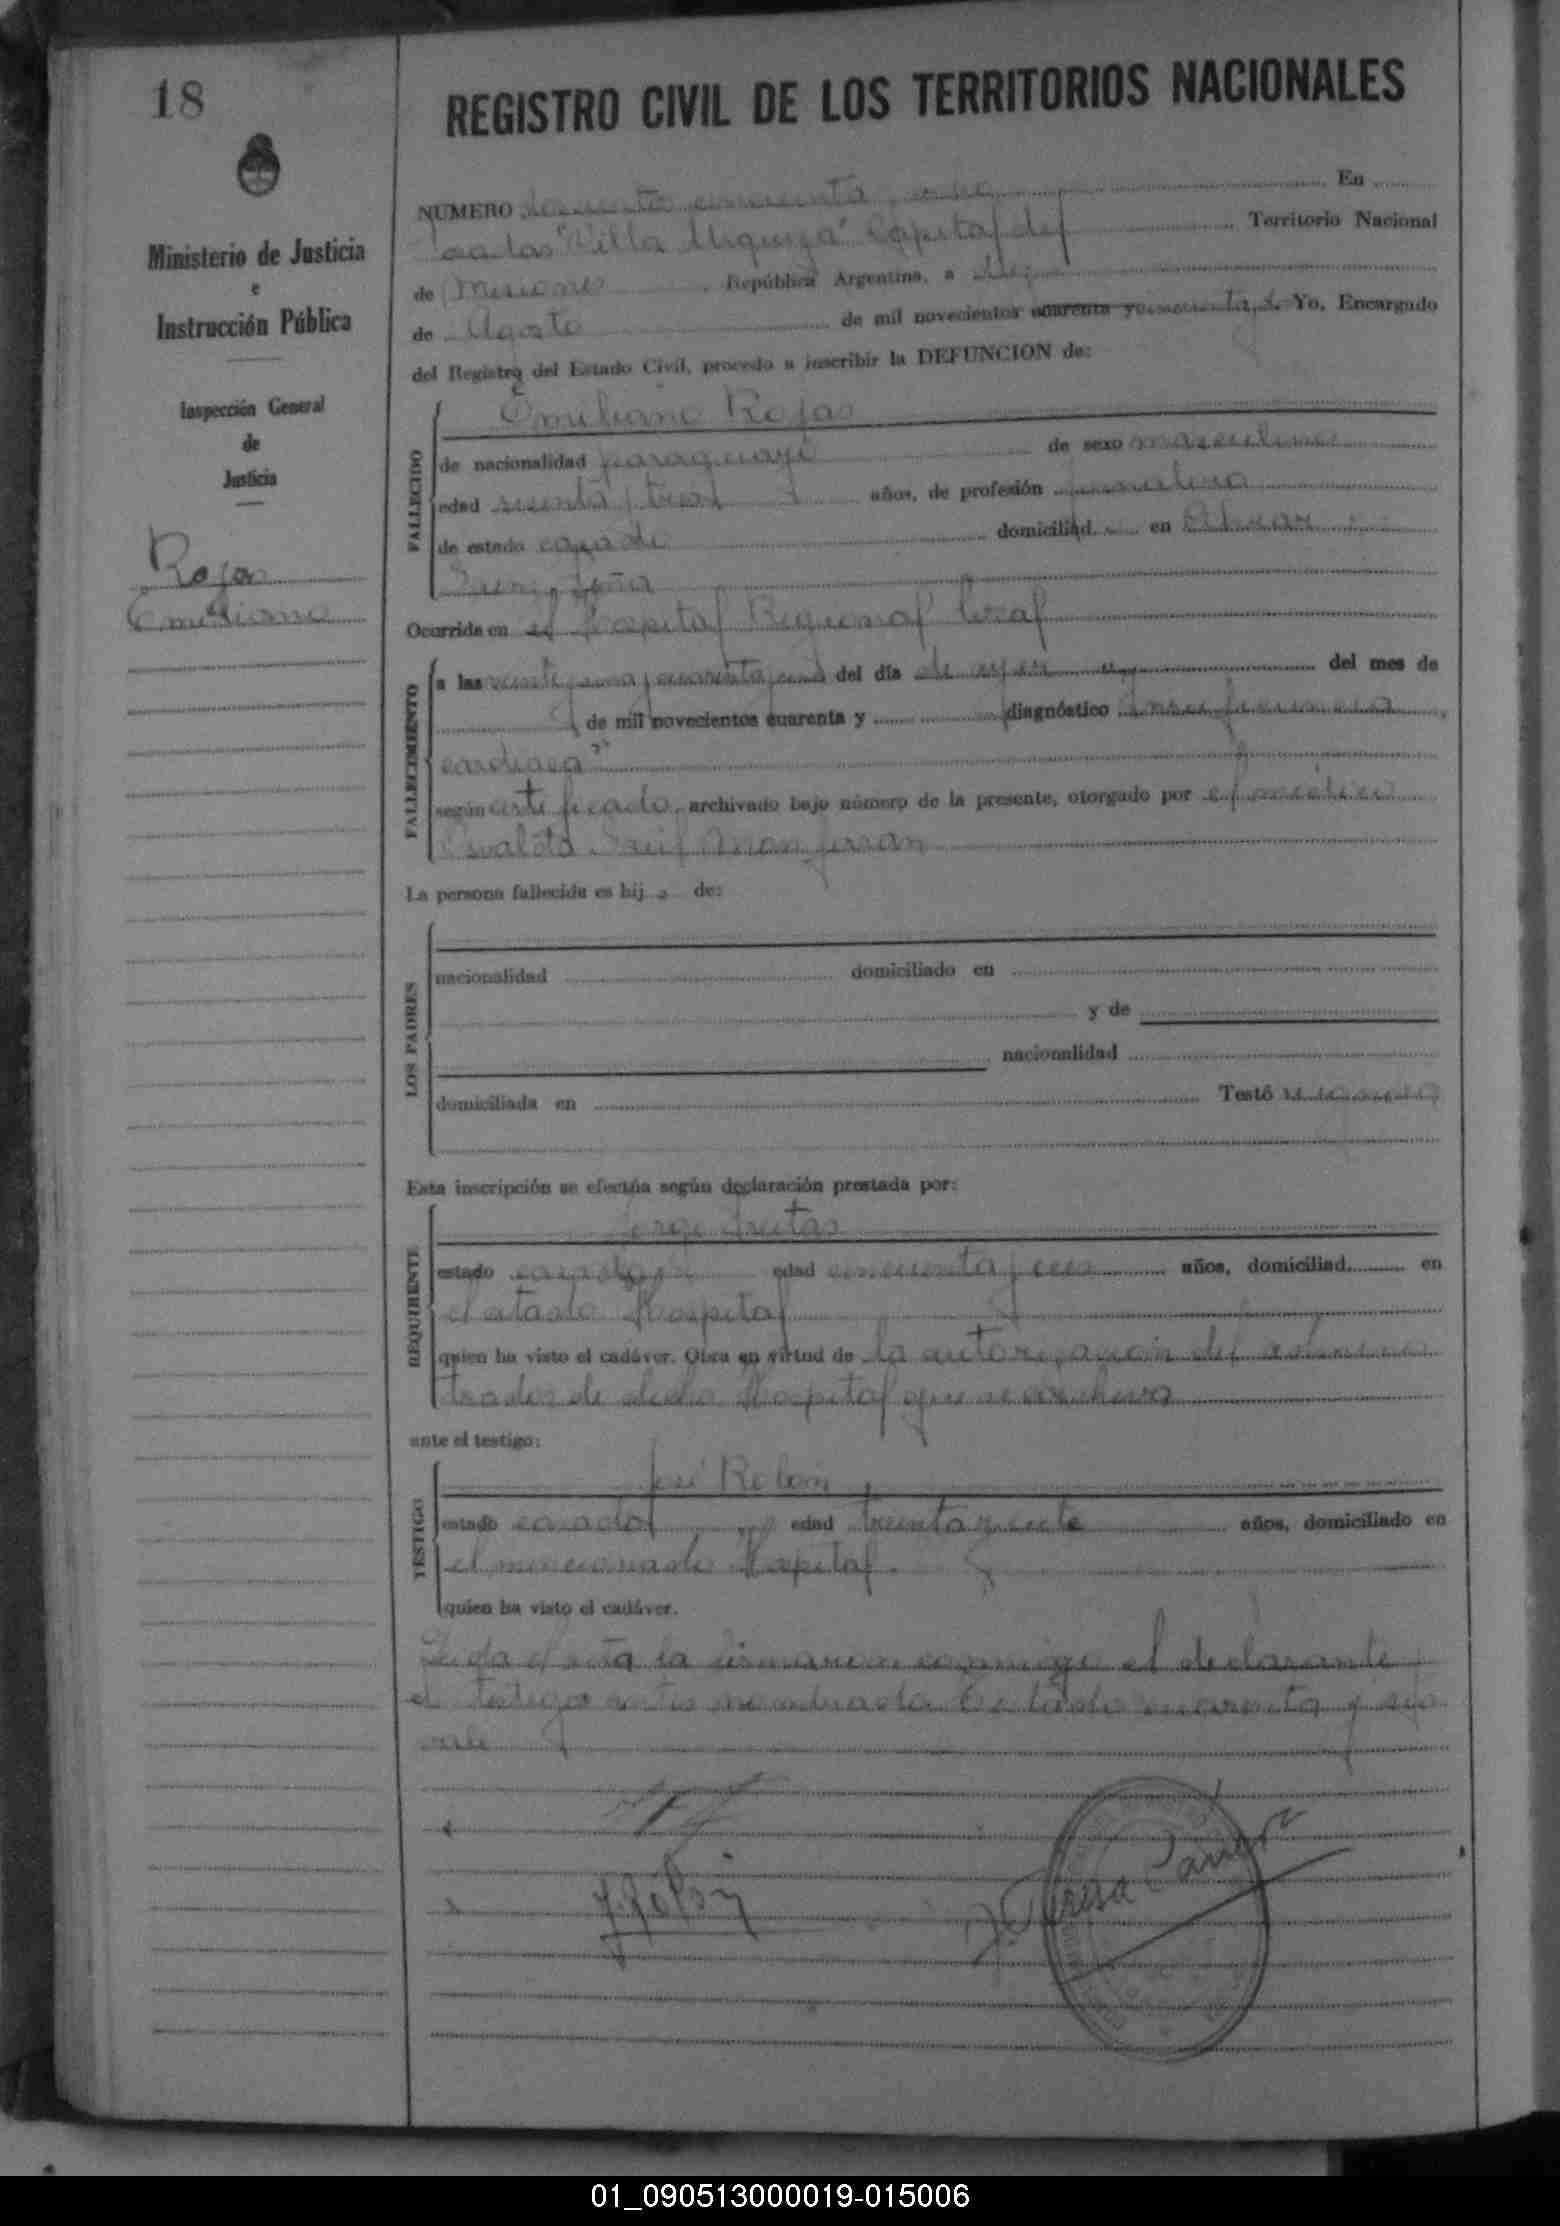 18
REGISTRO CIVIL DE LOS TERRITORIOS NACIONALES
Ministerio de Justicia
e
Instrucción Pública
Inspección General
de
Justicia
Rojas
Emiliano
NUMERO doscientos cincuenta En
sadas "Villa Urquiza" Capital del Territorio Nacional
de Misiones República Argentina, a
de Agosto de mil novecientos cuarenta y Yo, Encargado
del Registro del Estado Civil, procedo a inscribir la DEFUNCION de:
FALLECIDO
Emiliano Rojas
de nacionalidad paraguayo de sexo masculino
edad y tres años, de profesión jornalero
de estado casado domiciliad en
Saenz Peña
Ocurrida en el Hospital Regional local
FALLECIMIENTO
a las veinte y cuarenta del día de ayer del mes de
de mil novecientos cuarenta y diagnóstico Insuficiencia
cardiaca"
según certificado archivado bajo número de la presente, otorgado por el médico
Osvaldo
La persona fallecida es hij o de:
LOS PADRES
nacionalidad domiciliado en
y de
nacionalidad
domiciliada en Testó se ignora
Esta inscripción se efectúa según declaración prestada por:
REQUIRENTE
Jorge Freitas
estado casado edad cincuenta y años, domiciliad en
el citado Hospital
quien ha visto el cadáver. Obra en virtud de la autorización del adminis
trador de dicho Hospital que se archiva
ante el testigo:
TESTIGO
José Rolon
estado casado edad treinta y siete años, domiciliado en
el mencionado Hospital
quien ha visto el cadáver.
Leida el acta la firmaron conmigo el declarante y
el testigo antes nombrado. Testado cuarenta y
vale
Teresa
01_090513000019-015006